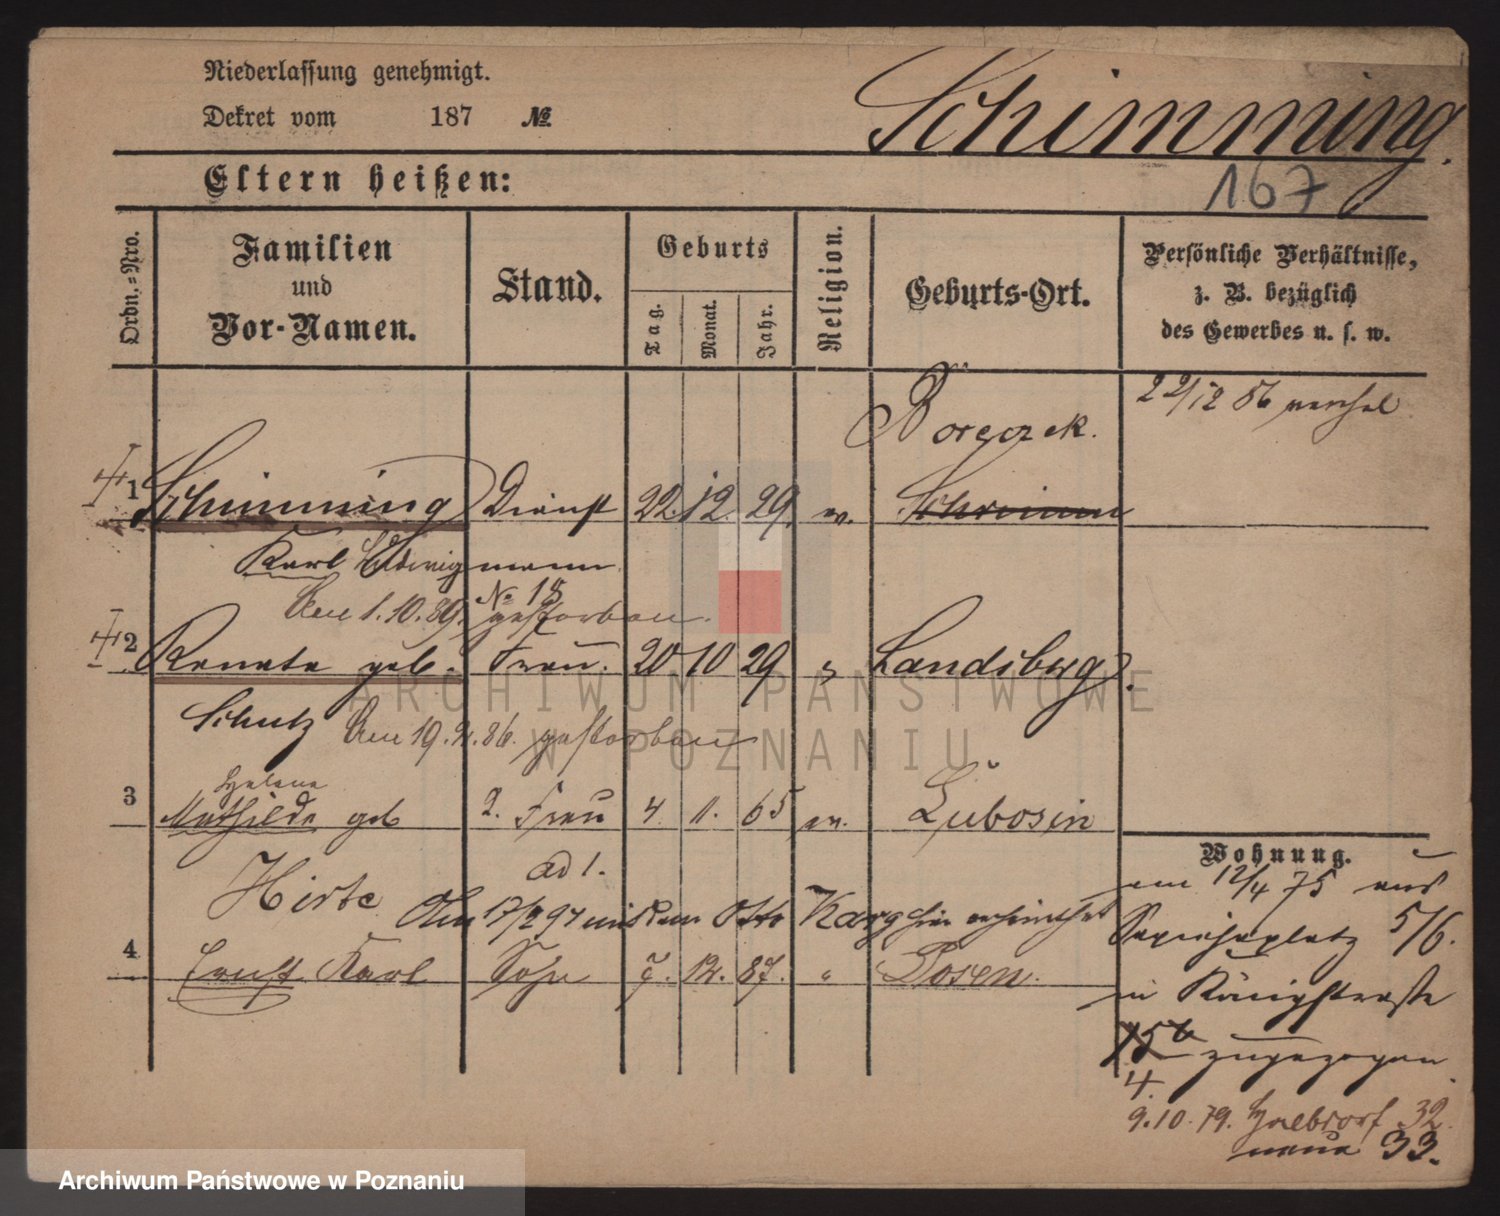 Niederlassung genehmigt.
Dekret vom 187 №
Schimming.
167
Eltern heißen:
Ordn.-Nro.
Familien und Vor-Namen.
Stand.
Geburts
Tag.
Monat.
Jahr.
Religion.
Geburts-Ort.
Persönliche Verhältnisse, z. B. bezüglich des Gewerbes u. s. w.
22/12 56
1 Schimming Dienst 22. 12. 29.
Karl Ludwig mann
№ 18
Am 1.10.89. gestorben.
2 Renate geb. Frau. 20 10 29 " Landsberg
Schutz Am 19. 86. gestorben
Helene
3 Mathilde geb 2. Frau 4 11. 65 ev. Lubosin
ad 1.
Hirte
17/ 94 mit dem Otto Karg hier verheirathet
4 Ernst Karl Sohn 7. 12. 87. " Posen.
Wohnung.
am 12/4 75 aus
Sapiehaplatz 5/6.
in Königstraße
15b zugezogen
4.
9.10.79. Halbdorf 32
neue 33.
ARCHIWUM PAŃSTWOWE
W POZNANIU
Archiwum Państwowe w Poznaniu